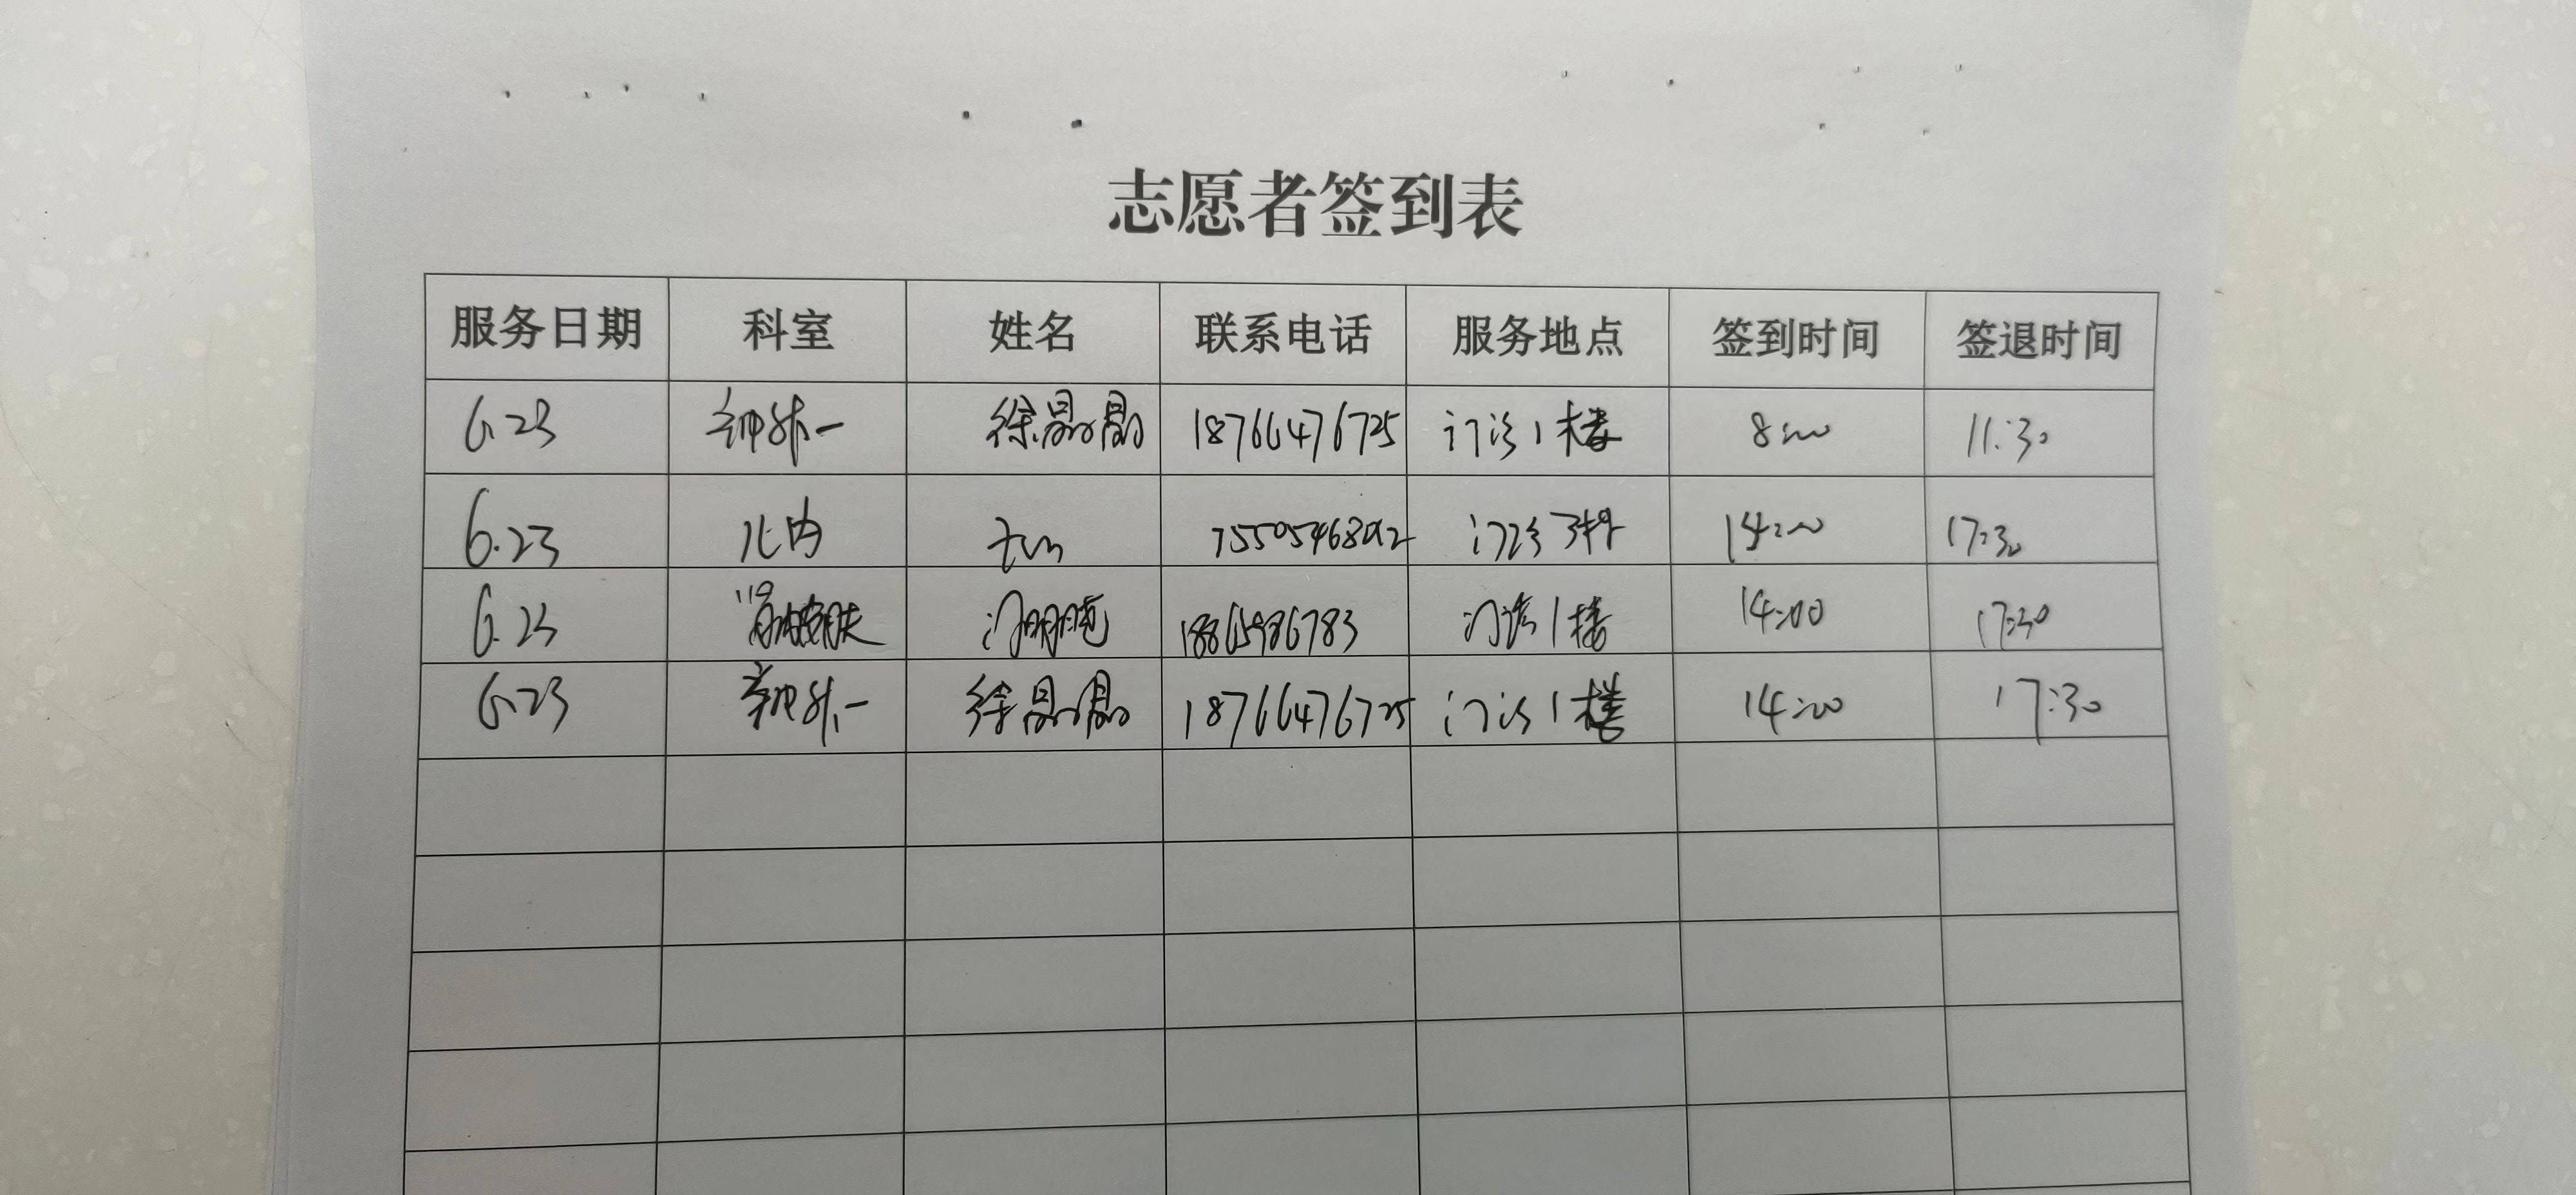 志愿者签到表
服务日期 科室 姓名 联系电话 服务地点 签到时间 签退时间
6.23 神外一 徐晶晶 18766476725 门诊1楼 8:00 11:30
6.23 儿内 门诊3楼 14:00 17:30
6.23 皮肤 18865986783 门诊1楼 14:00 17:30
6.23 神外一 徐晶晶 18766476725 门诊1楼 14:00 17:30